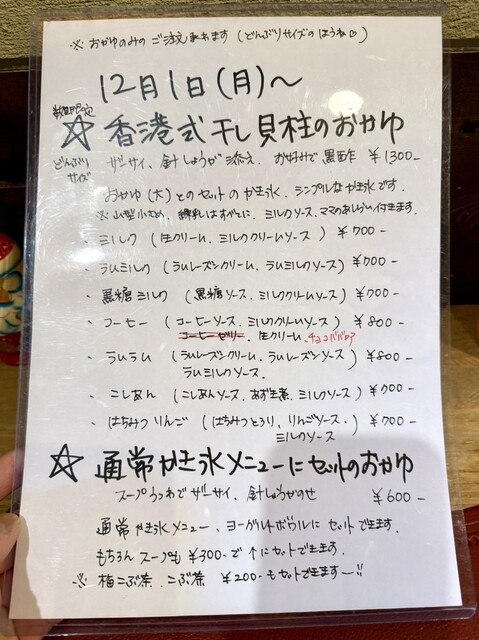 ※ おかゆのみの ご注文 承れます (どんぶりサイズのほうね♡)
12月1日(月)〜
数量限定
☆ 香港式 干し貝柱のおかゆ
どんぶりサイズ ザーサイ、針しょうが添え、お好みで黒酢 ¥1300-
おかゆ(大)とのセットの かき氷、シンプルなかき氷です。
※ 山型小さめ、練乳はすべてに、ミルクソース、ママのあしらい付きます。
・ミルク (生クリーム、ミルククリームソース) ¥700-
・ラムミルク (ラムレーズンクリーム、ラムミルクソース) ¥700-
・黒糖ミルク (黒糖ソース、ミルククリームソース) ¥700-
・コーヒー (コーヒーソース、ミルククリームソース) ¥800-
コーヒーゼリー、生クリーム、チョコババロア
・ラムラム (ラムレーズンクリーム、ラムレーズンソース) ¥800-
ラムミルクソース、
・こしあん (こしあんソース、あずき煮、ミルクソース) ¥700-
・はちみつりんご (はちみつとろり、りんごソース、 ¥700-
ミルクソース)
☆ 通常かき氷メニューにセットのおかゆ
スープうつわでザーサイ、針しょうがのせ ¥600-
通常かき氷メニュー、ヨーグルトボウルに セットできます。
もちろん スープも ¥300-で ↑にセットできます。
※ 梅こぶ茶、こぶ茶 ¥200-もセットできます〜!!